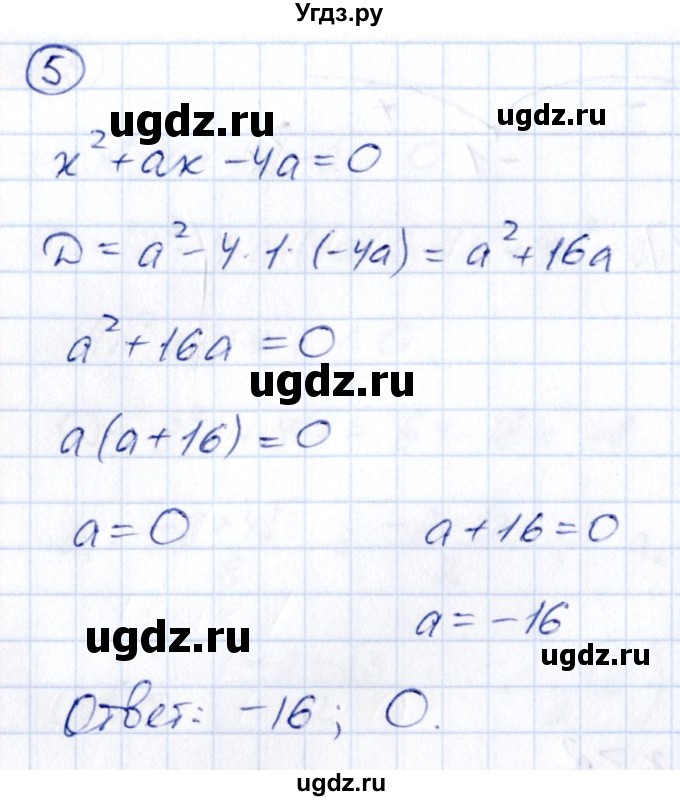 Угдз.ру
5
ugdz.ru
ugdz.ru
x² + ax − 4a = 0
D = a² − 4 · 1 · (−4a) = a² + 16a
a² + 16a = 0
ugdz.ru
a(a + 16) = 0
a = 0 a + 16 = 0
a = −16
ugdz.ru
ugdz.ru
Ответ: −16; 0.
ugdz.ru